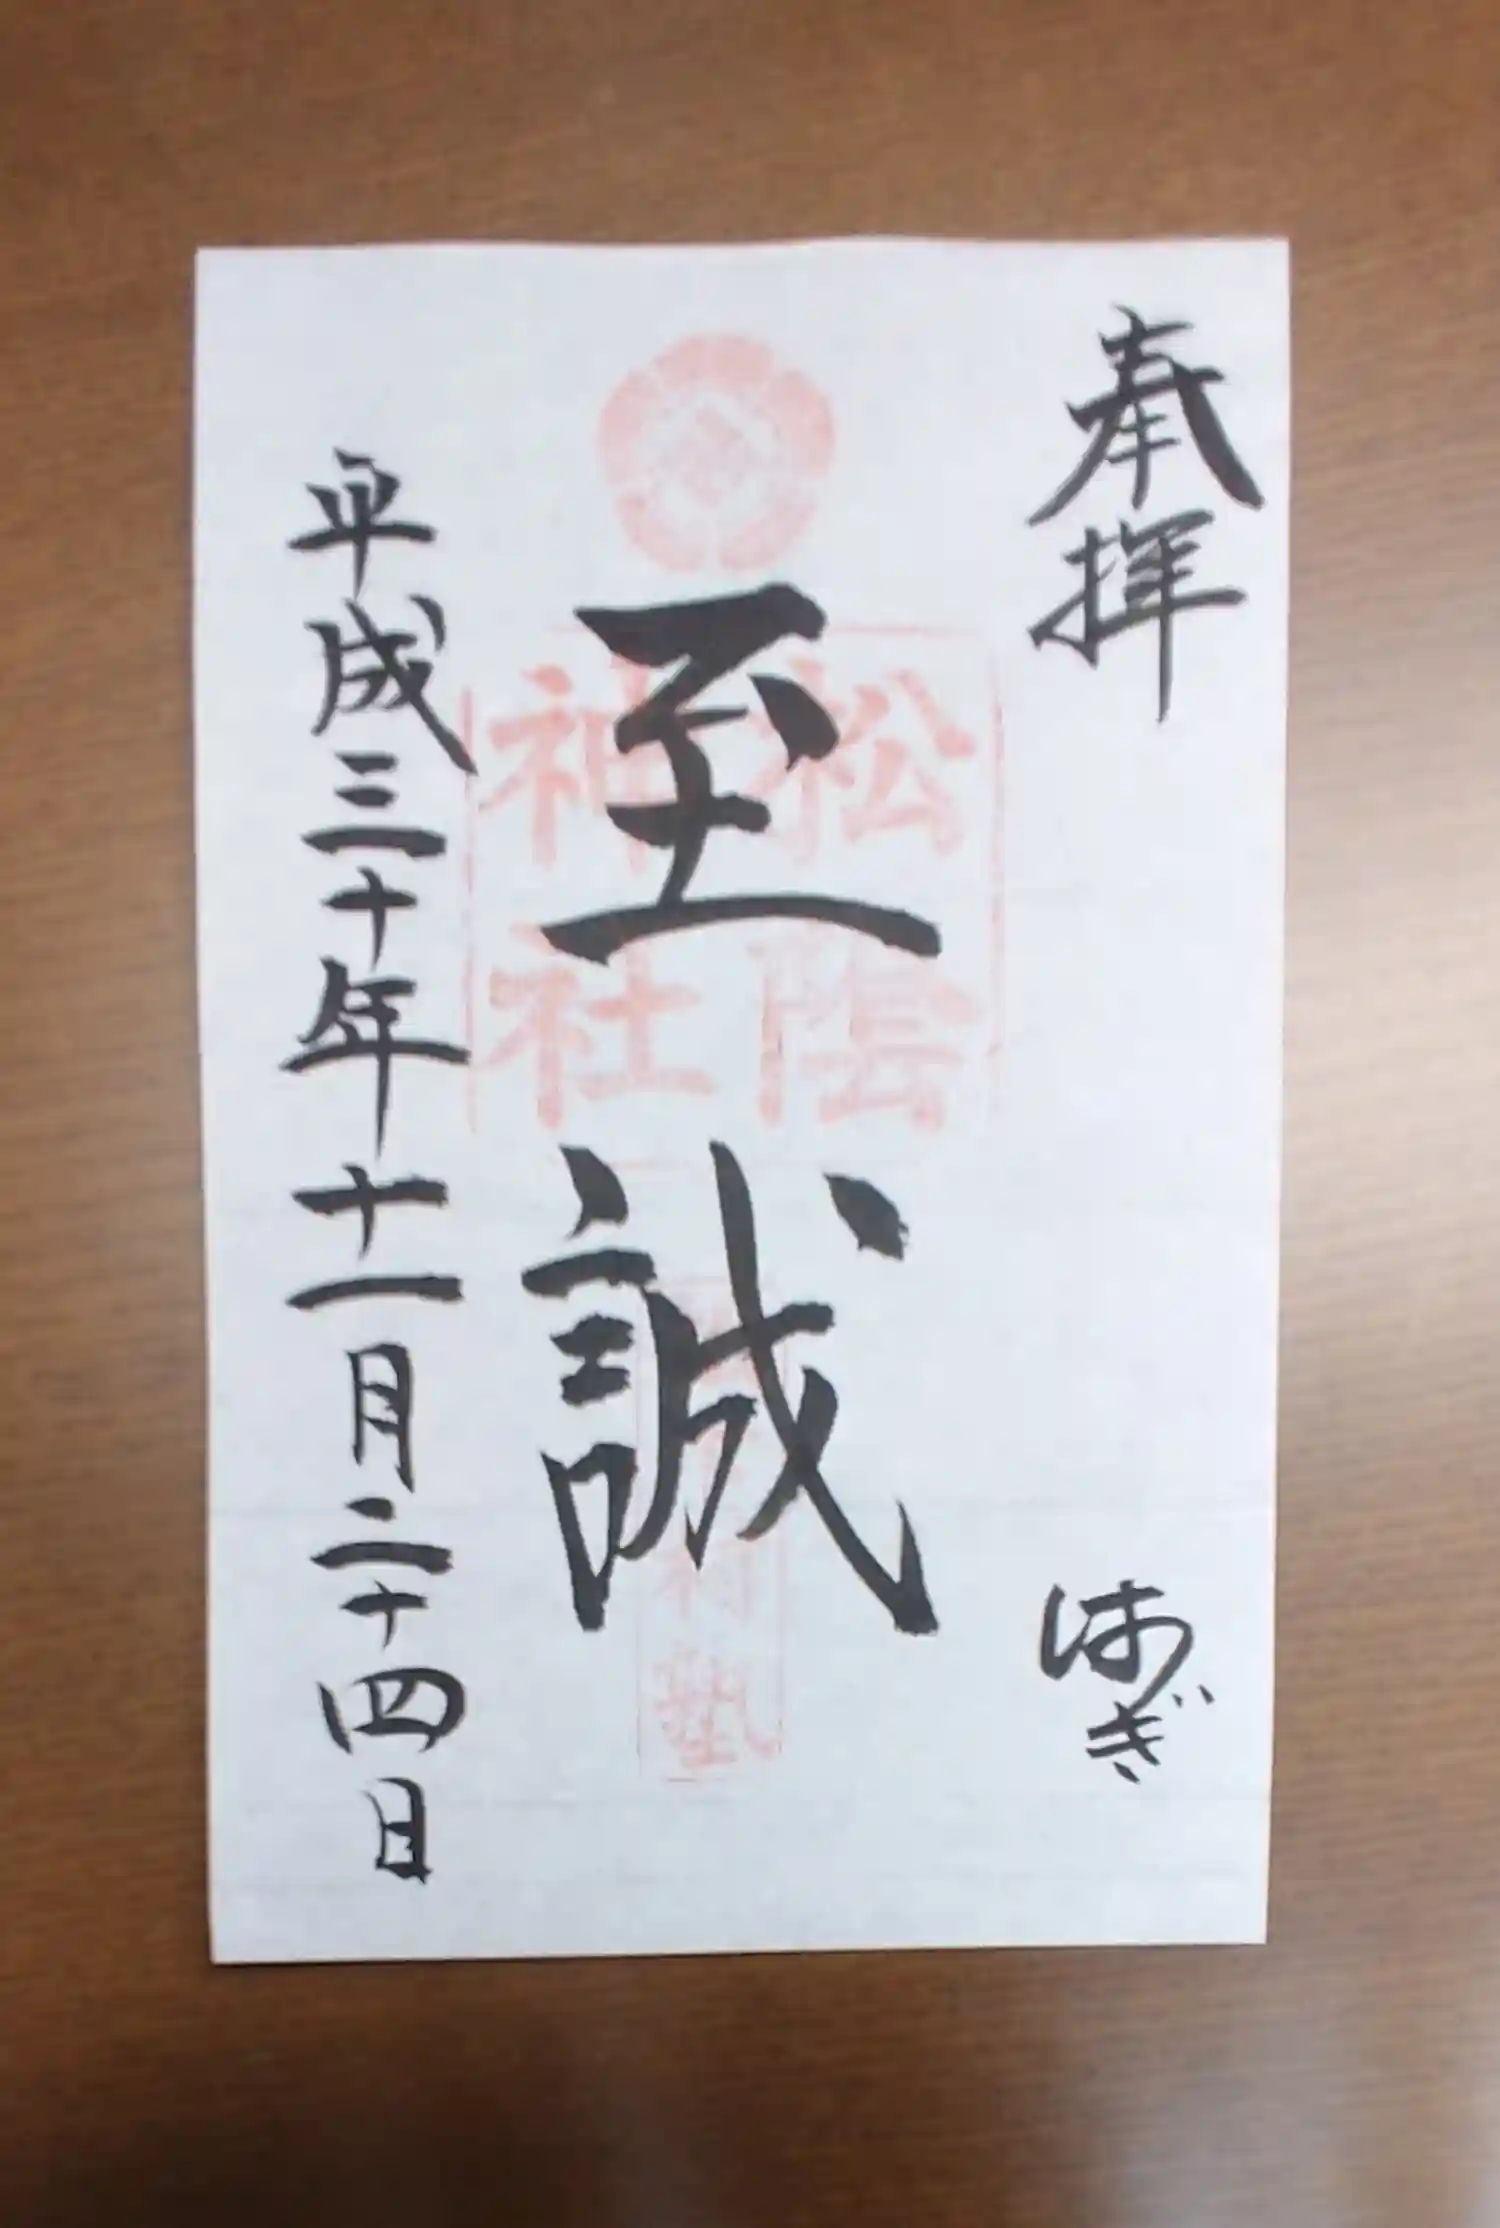 奉拝
はぎ
松陰
神社
至誠
村塾
平成三十年十一月二十四日